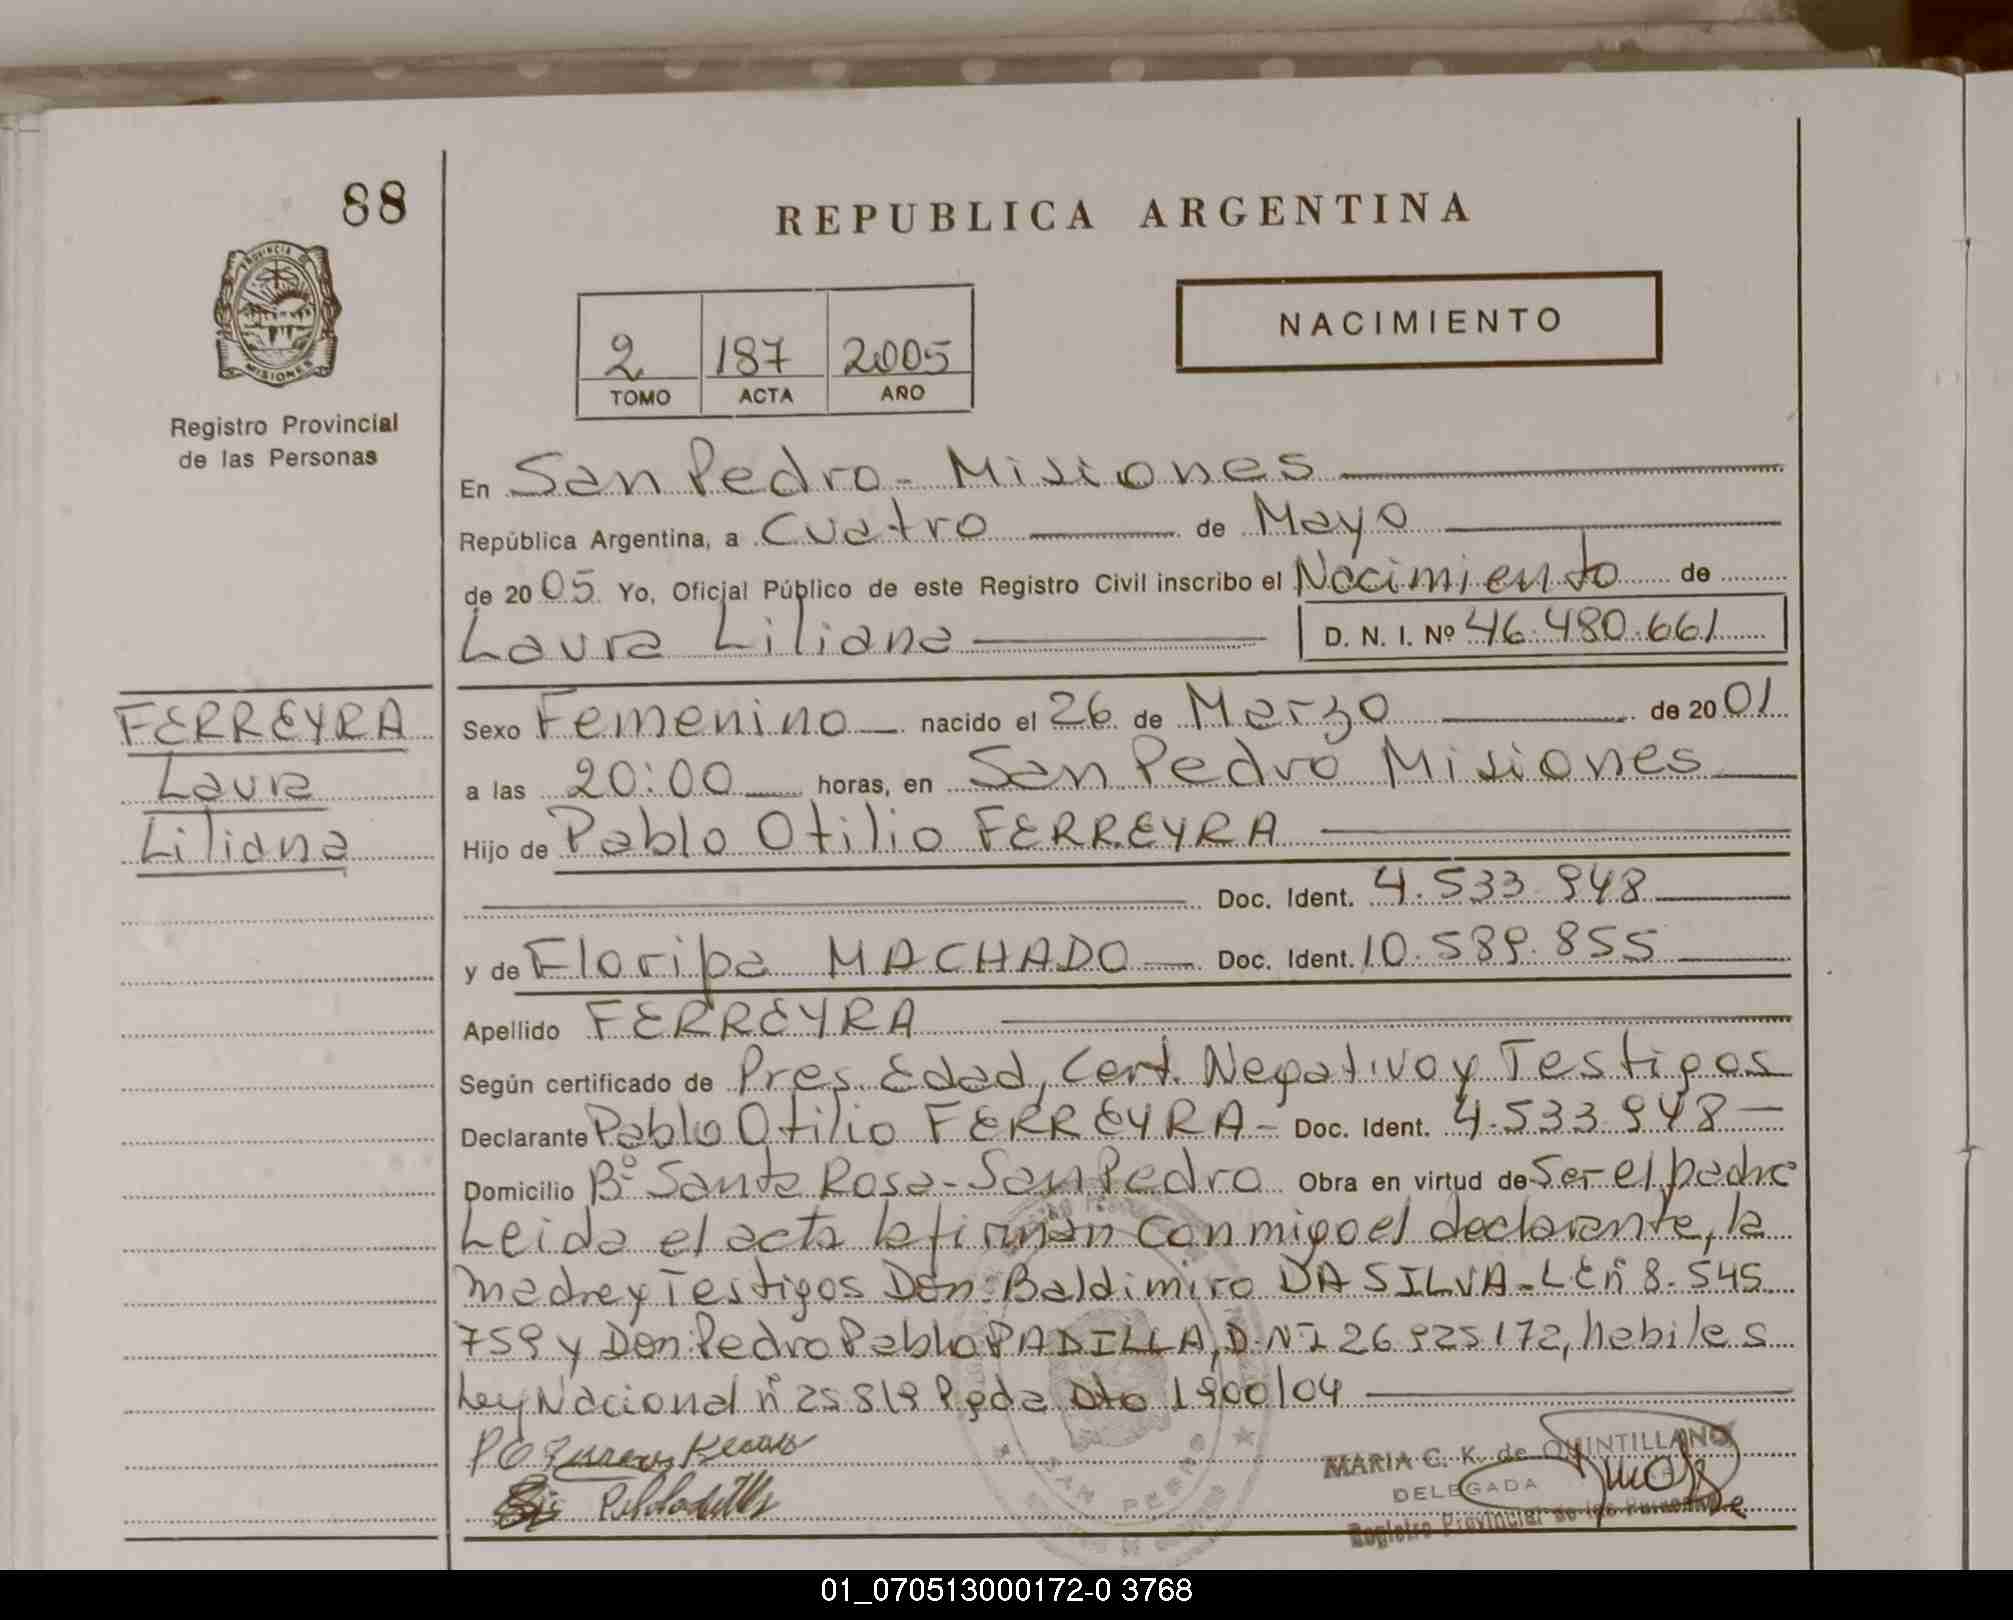 88
REPUBLICA ARGENTINA
PROVINCIA DE
MISIONES
NACIMIENTO
2 187 2005
TOMO ACTA AÑO
Registro Provincial
de las Personas
En San Pedro - Misiones
República Argentina, a Cuatro de Mayo
de 2005. Yo, Oficial Público de este Registro Civil inscribo el Nacimiento de
Laura Liliana D. N. I. Nº 46.480.661
FERREYRA
Laura
Liliana
Sexo Femenino nacido el 26 de Marzo de 2001
a las 20:00 horas, en San Pedro Misiones
Hijo de Pablo Otilio FERREYRA
Doc. Ident. 4.533.948
y de Floripa MACHADO Doc. Ident. 10.589.855
Apellido FERREYRA
Según certificado de Pres. Edad, Cert. Negativo y Testigos
Declarante Pablo Otilio FERREYRA - Doc. Ident. 4.533.948
Domicilio Bº Santa Rosa - San Pedro Obra en virtud de Ser el padre
Leida el acta la firman conmigo el declarante, la
madre y Testigos Don: Baldimiro DA SILVA - L.E nº 8.545
759 y Don: Pedro Pablo PADILLA, D.N.I 26.925.172, habiles
Ley Nacional nº 25819 Pgda Dto 1900/04
MARIA C. K. de QUINTILLANO
DELEGADA
Registro Provincial de las Personas
SAN PEDRO
01_070513000172-0 3768